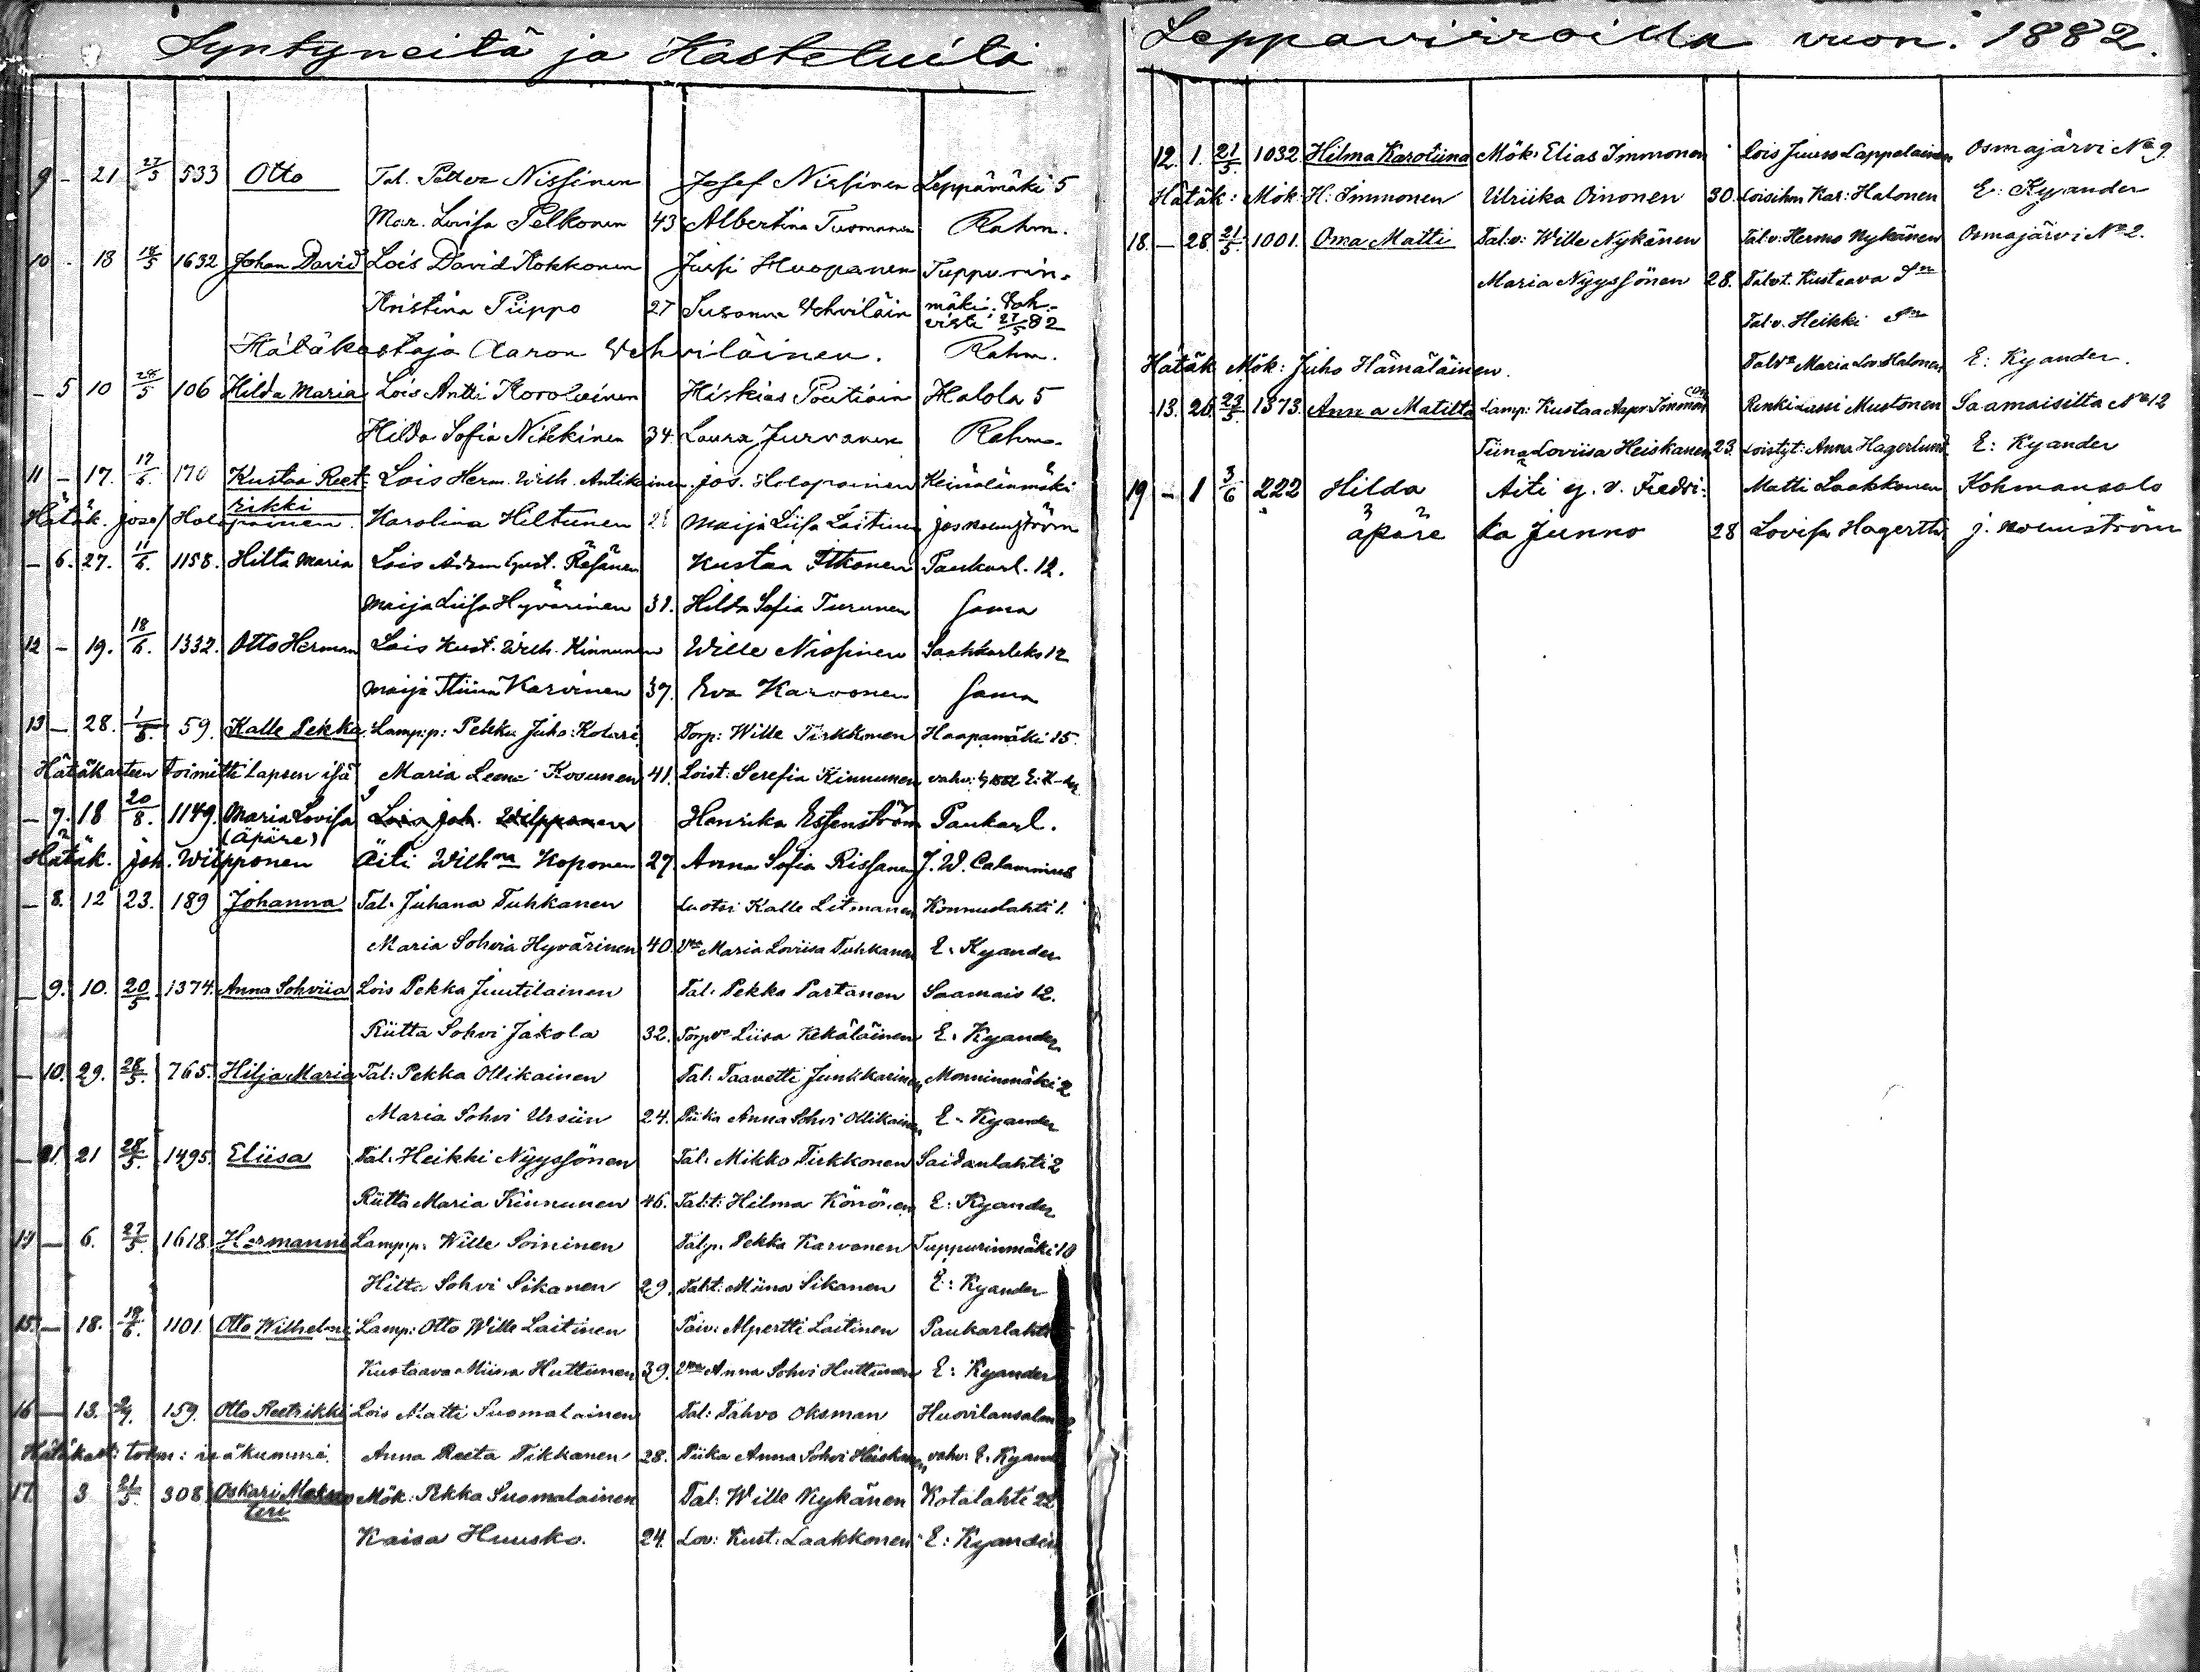 Syntyneitä ja Kasteluita
9 - 21 27/5 533 Otto Tal. Petter Nissinen Josef Nissinen Leppämäki 5
Mar. Lovisa Pelkonen 43 Albertina Tuomanen Rahm.
10 - 18 18/5 1632 Johan David Lois David Kokkonen Jussi Huopanen Tuppurin-
Kristina Piippo 27 Susanna Vehviläin mäki. Vah-
visti 27/5 82
Hätäkastaja Aaron Vehviläinen. Rahm.
- 5 10 28/5 106 Hilda Maria Lois Antti Korolainen Hiskias Poutiain Halola 5
Hilda Sofia Nitekinen 34. Laura Jurvanen Rahm.
11 - 17. 17/6. 170 Kustaa Reet- Lois Herm. Wilh. Antikainen. Jos. Holopainen Keinälänmäki
rikki
Hätäk. Josef Holopainen. Karolina Hiltunen 28 Maija Liisa Laitinen jos Molmström
- 6. 27. 11/6. 1158. Hilta Maria Lois Adam Gust. Räsänen Kustaa Itkonen Paukarl. 12.
Maija Liisa Hyvärinen 31. Hilda Sofia Turunen Sama
12 - 19. 18/6. 1332. Otto Herman Lois Kust. Wilh. Kinnunen Wille Nissinen Saahkarleks 12
Maija Stiina Karvinen 37. Eva Karvonen Sama
13 - 28. 1/6. 59. Kalle Pekka Lamp:p: Pekka Juho: Kolari Torp: Wille Tirkkonen Haapamäki 15.
Hätäkasteen toimitti lapsen isä Maria Leena Kosunen 41. Loist: Serefia Kinnunen
- 7. 18 20/8. 1149. Maria Lovisa Lois joh. Wilpponen Henrika Essenström Paukarl.
(äpäre)
Hätäk. joh. Wilpponen Äiti Wilhna Koponen 27. Anna Sofia Rissanen J. W. Calamnius
- 8. 12 23. 189 Johanna Tal: Juhana Tuhkanen Luotsi Kalle Litmanen Konnuslahti 1.
Maria Sohvia Hyvärinen 40. Vmo Maria Loviisa Tuhkanen E: Kyander
- 9. 10. 20/5 1374. Anna Sohviia Lois Pekka Juutilainen Tal: Pekka Partanen Saamais 12.
Riitta Sohvi Jakola 32. Torpv Liisa Kekäläinen E: Kyander
- 10. 29. 28/5. 765. Hilja Maria Tal: Pekka Ollikainen Tal: Taavetti Junkkarinen Monninmäki 2
Maria Sohvi Ursiin 24. Piika Anna Sohvi Ollikainen E. Kyander
- 21 28/5. 1495. Eliisa Tal: Heikki Nyyssönen Tal: Mikko Tirkkonen Saidanlahti 2
Riitta Maria Kinnunen 46. Tal:t: Hilma Könönen E: Kyander
14 - 6. 27/5. 1618 Hermanni Lamp:p: Wille Soininen Tal:p. Pekka Karvonen Tuppurinmäki 10
Hilta Sohvi Sikanen 29. Tal:t: Miina Sikanen E: Kyander
15. - 18. 18/6. 1101 Otto Wilhelmi Lamp: Otto Wille Laitinen Päiv: Alpertti Laitinen Paukarlahti
Kustaava Miina Huttunen 39. Vmo Anna Sohvi Huttunen E: Kyander
16 - 13. 159. Otto Reetrikki Lois Matti Suomalainen Tal: Tahvo Oksman Huovilansalo
Hätäkast: toim: isäkummi. Anna Reeta Tikkanen 28. Piika Anna Sohvi Heiskanen vahv: E. Kyand
17. 3 21/5. 308 Oskari Maknus Mök: Pekka Suomalainen Tal: Wille Nykänen Kotalahti 22
teri
Kaisa Huusko. 24. Lov: Kust: Laakkonen E: Kyander
Leppävirroilla vuon. 1882.
12. 1. 21/5. 1032. Hilma Karoliina Mök: Elias Immonen Lois Juuso Lappalainen Osmajärvi No 9
Hätäk: Mök: H: Immonen Ulriika Oinonen 30. Loisihm Kar: Halonen E: Kyander
18. - 28. 21/5. 1001. Oma Matti Tal:v: Wille Nykänen Tal:v: Hermo Nykänen Osmajärvi No 2.
Maria Nyyssönen 28. Talvt. Kustaava Sn
Tal:v. Heikki Sn
Hätäk Mök: Juho Hämäläinen. Talva Maria Lov: Halonen E: Kyander.
13. 26. 23/5. 1373. Anna Matilta Lamp: Kustaa Aapr Immonen Renki Lassi Mustonen Saamaisilta No 12
Tiina Loviisa Heiskanen 23. Loistyt: Anna Hagerlund E: Kyander
19 - 1 3/6 222 Hilda Äiti y. v. Fredri- Matti Laakkonen Kohmansalo
äpäre ka Junno 28 Lovisa Hagertti j. Molmström